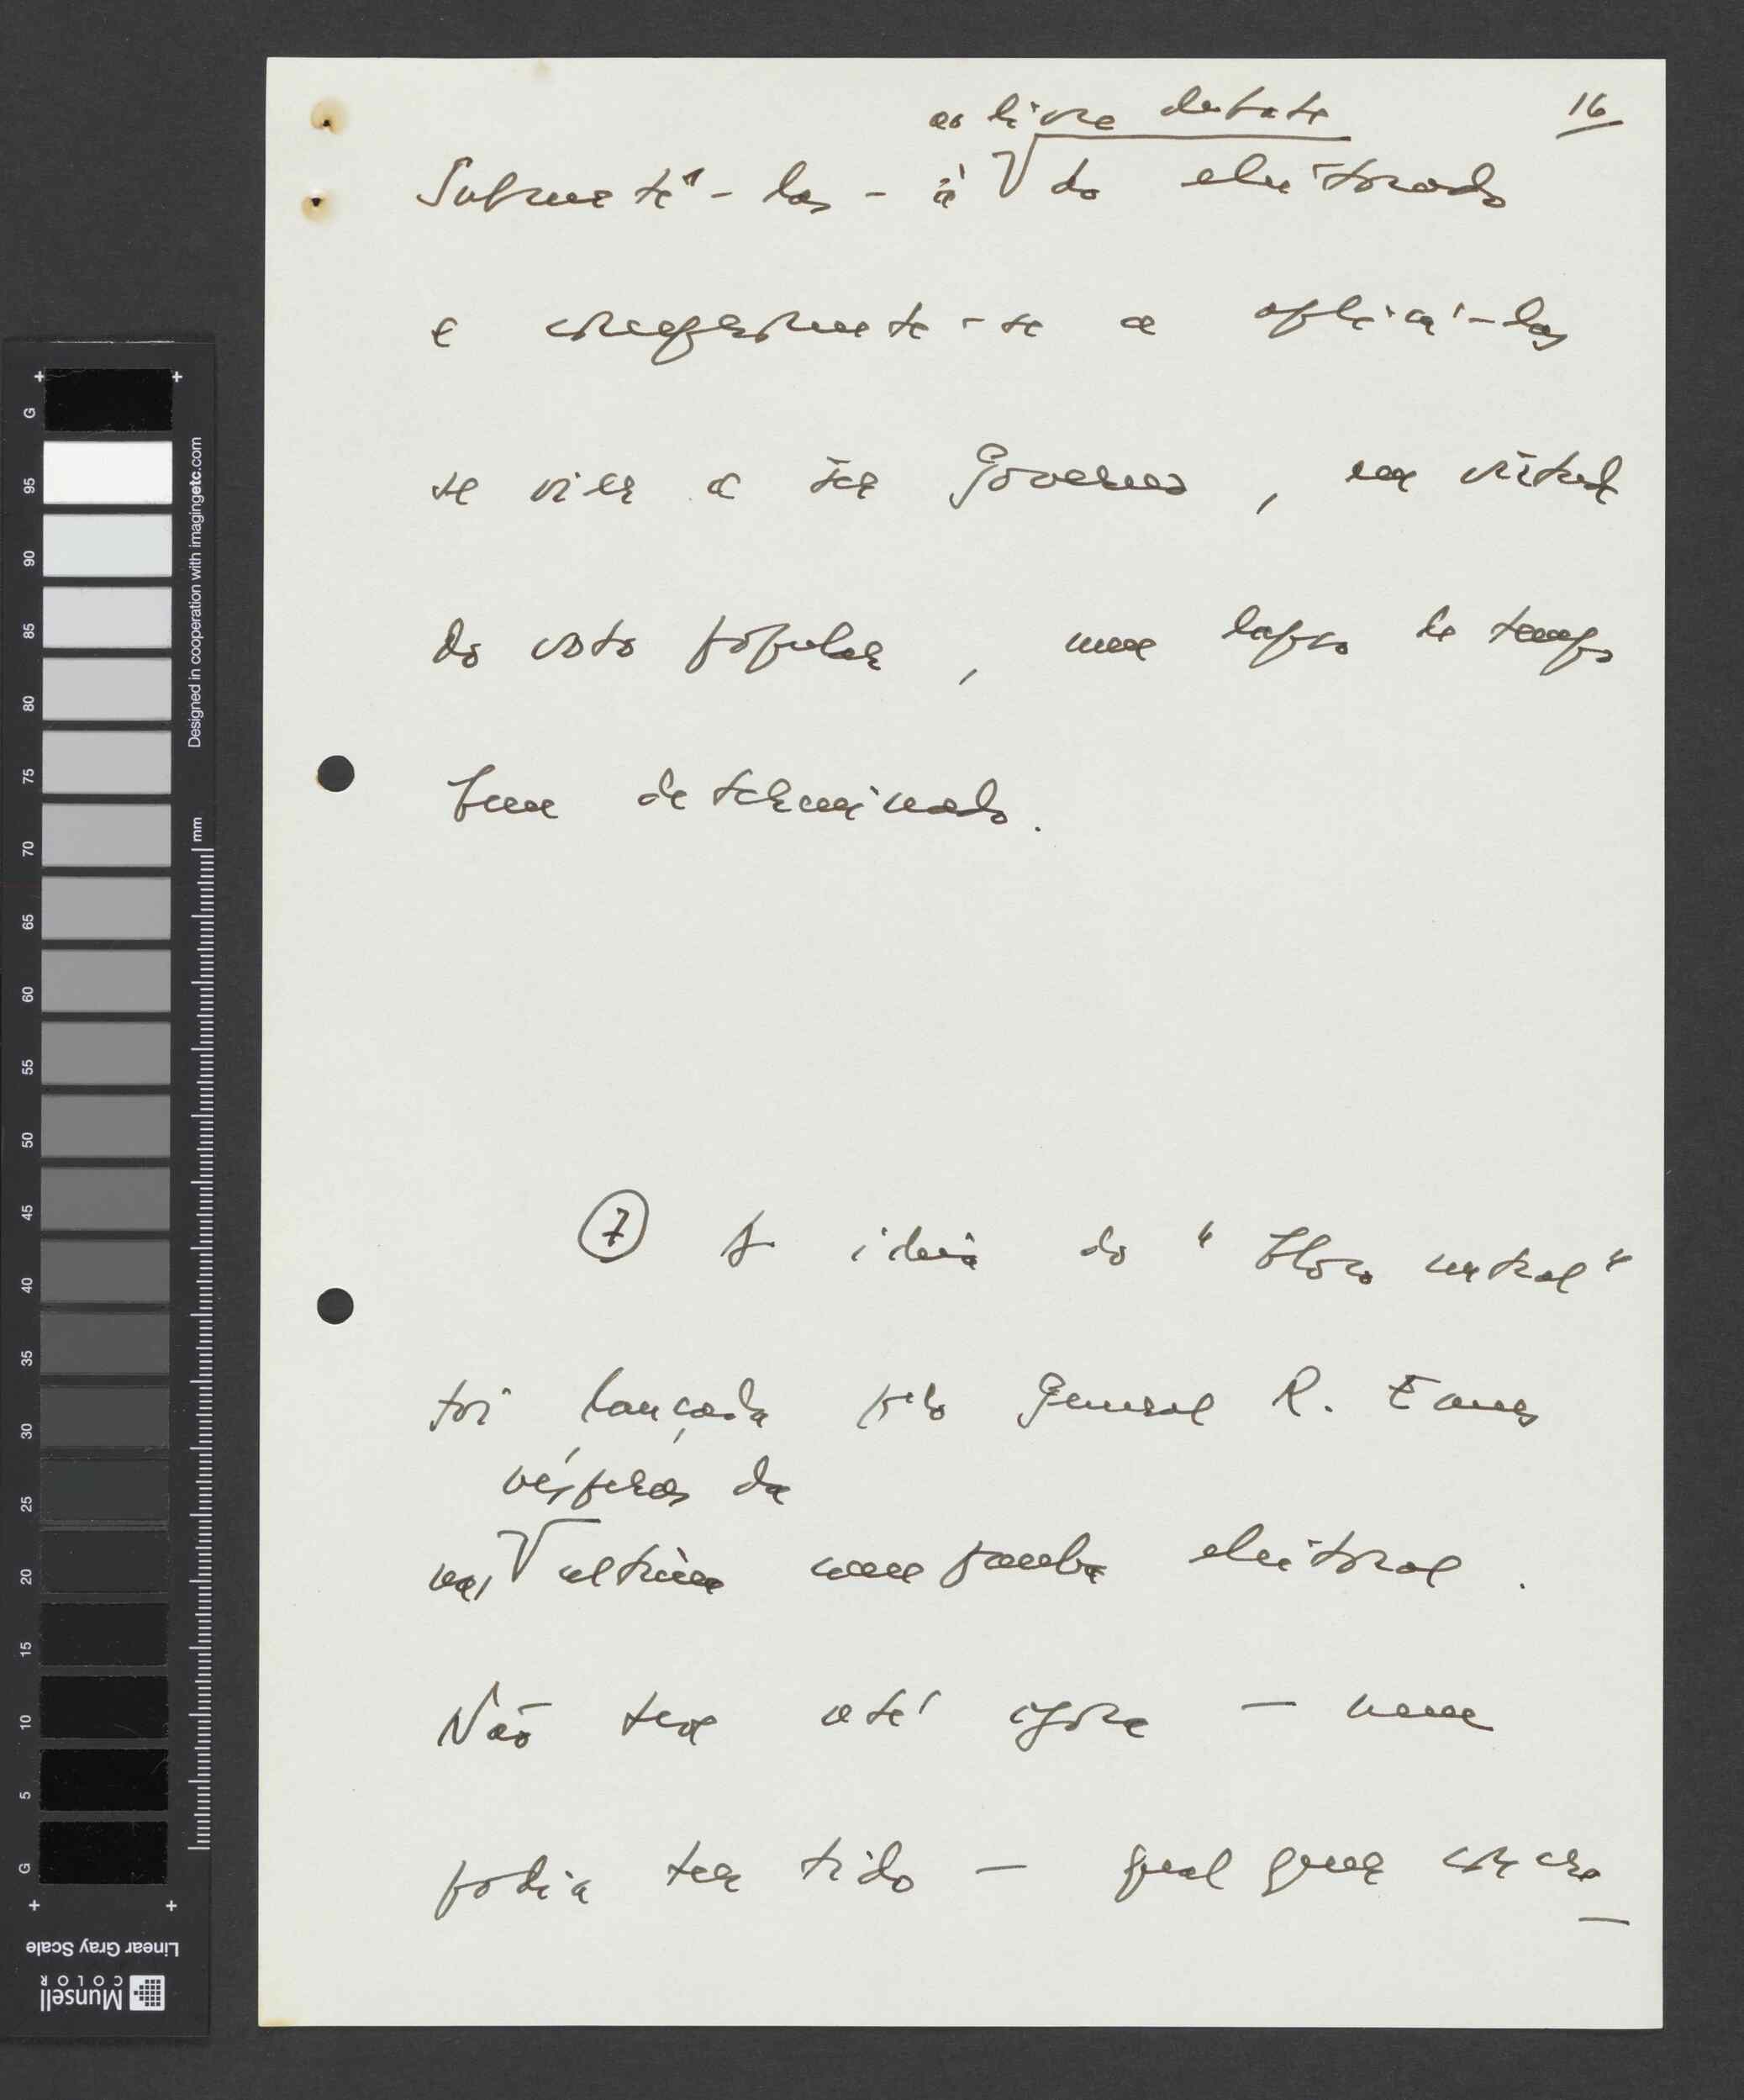 16
ao livre debate
Submetê-las-á do eleitorado
e compromete-se a aplicá-las
se vier a ser Governo, em virtude
do voto popular, num lapso de tempo
bem determinado.
7 A ideia do "bloco central"
foi lançada pelo General R. Eanes
vésperas da
nas última campanha eleitoral.
Não teve até agora — nem
podia ter tido — qualquer concre-
G 95 90 85 80 75 70 65 60 55 50 45 40 35 30 25 20 15 10 5 G
Designed in cooperation with imagingetc.com
mm
Linear Gray Scale
Munsell
COLOR